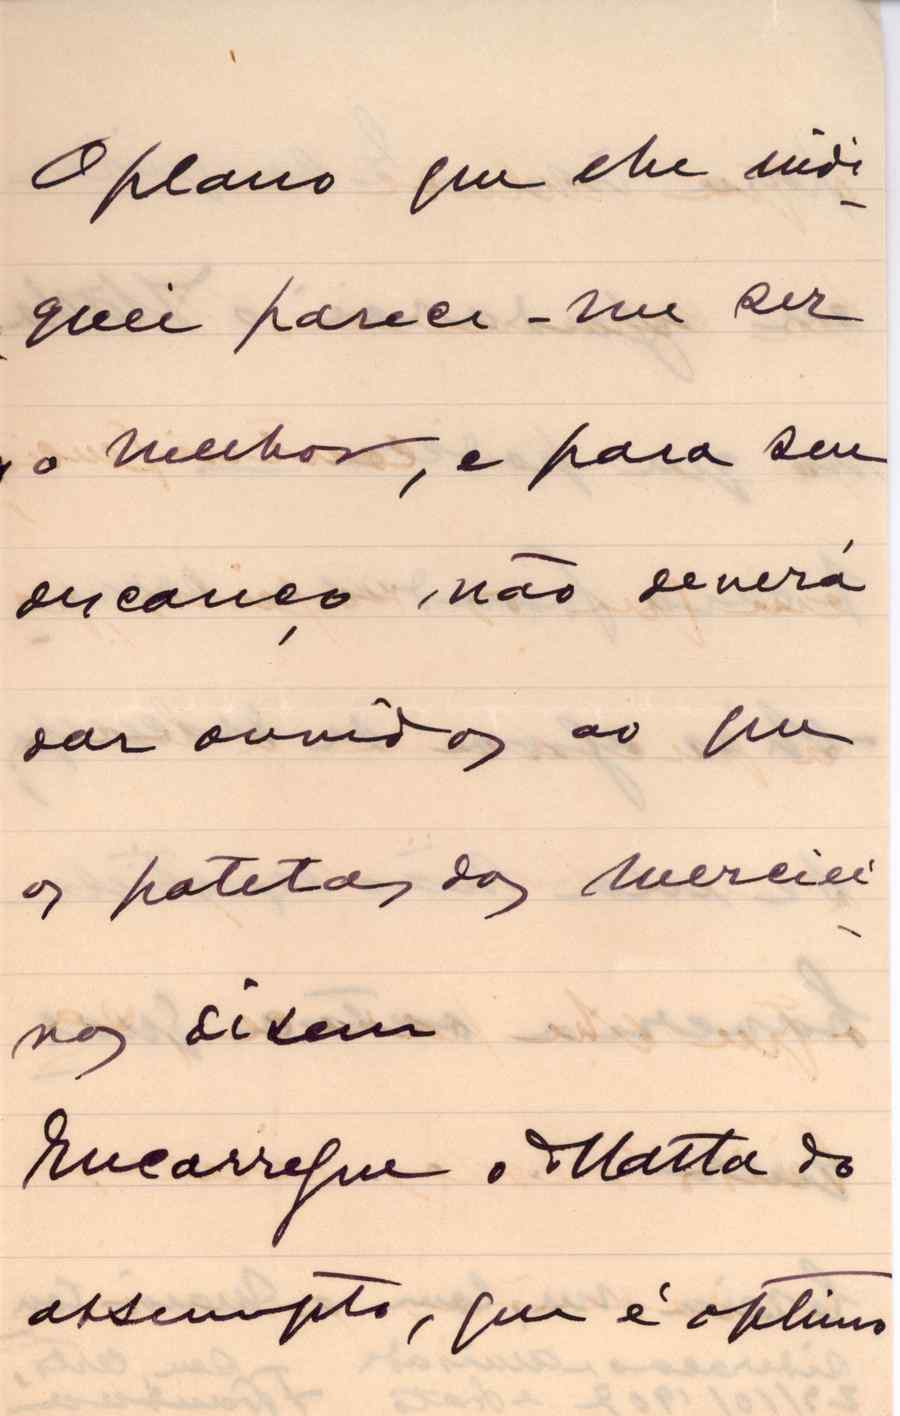 O plano que lhe indi-
quei parece-me ser
o melhor, e para seu
descanço não deverá
dar ouvidos ao que
os patetas dos merciei-
ros disem
Encarregue o Matta do
assumpto, que é optimo